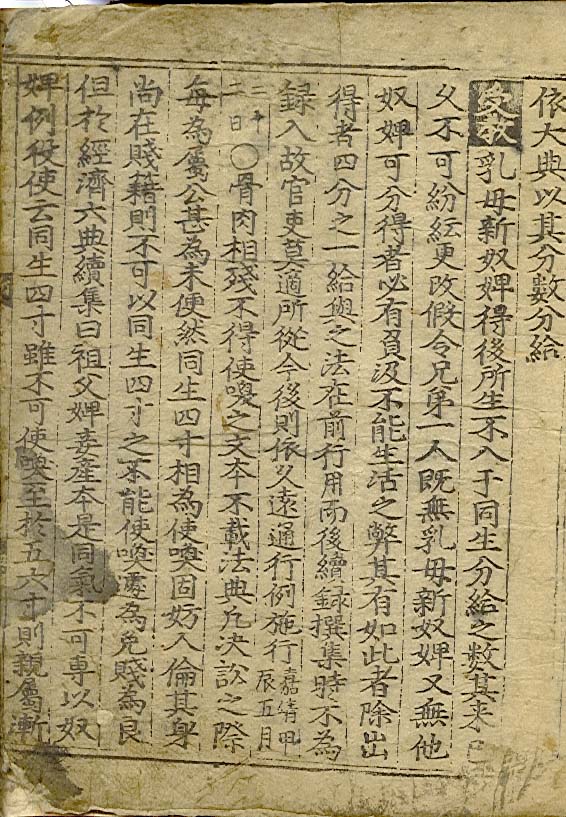 依大典以其分數分給
受敎乳母新奴婢得後所生不入于同生分給之數其來已
久不可紛紜更改假令兄弟一人旣無乳母新奴婢又無他
奴婢可分得者必有負汲不能生活之弊其有如此者除出
得者四分之一給與之法在前行用而後續録撰集時不爲
録入故官吏莫適所從今後則依久遠通行例施行嘉靖甲辰五月
二十二日〇骨肉相殘不得使喚之文本不載法典凡決訟之際
每爲屬公甚爲未便然同生四寸相爲使喚固妨人倫其身
尚在賤籍則不可以同生四寸之不能使喚遽爲免賤爲良
但於經濟六典續集曰祖父婢妾産本是同氣不可專以奴
婢例役使云同生四寸雖不可使喚至於五六寸則親屬漸